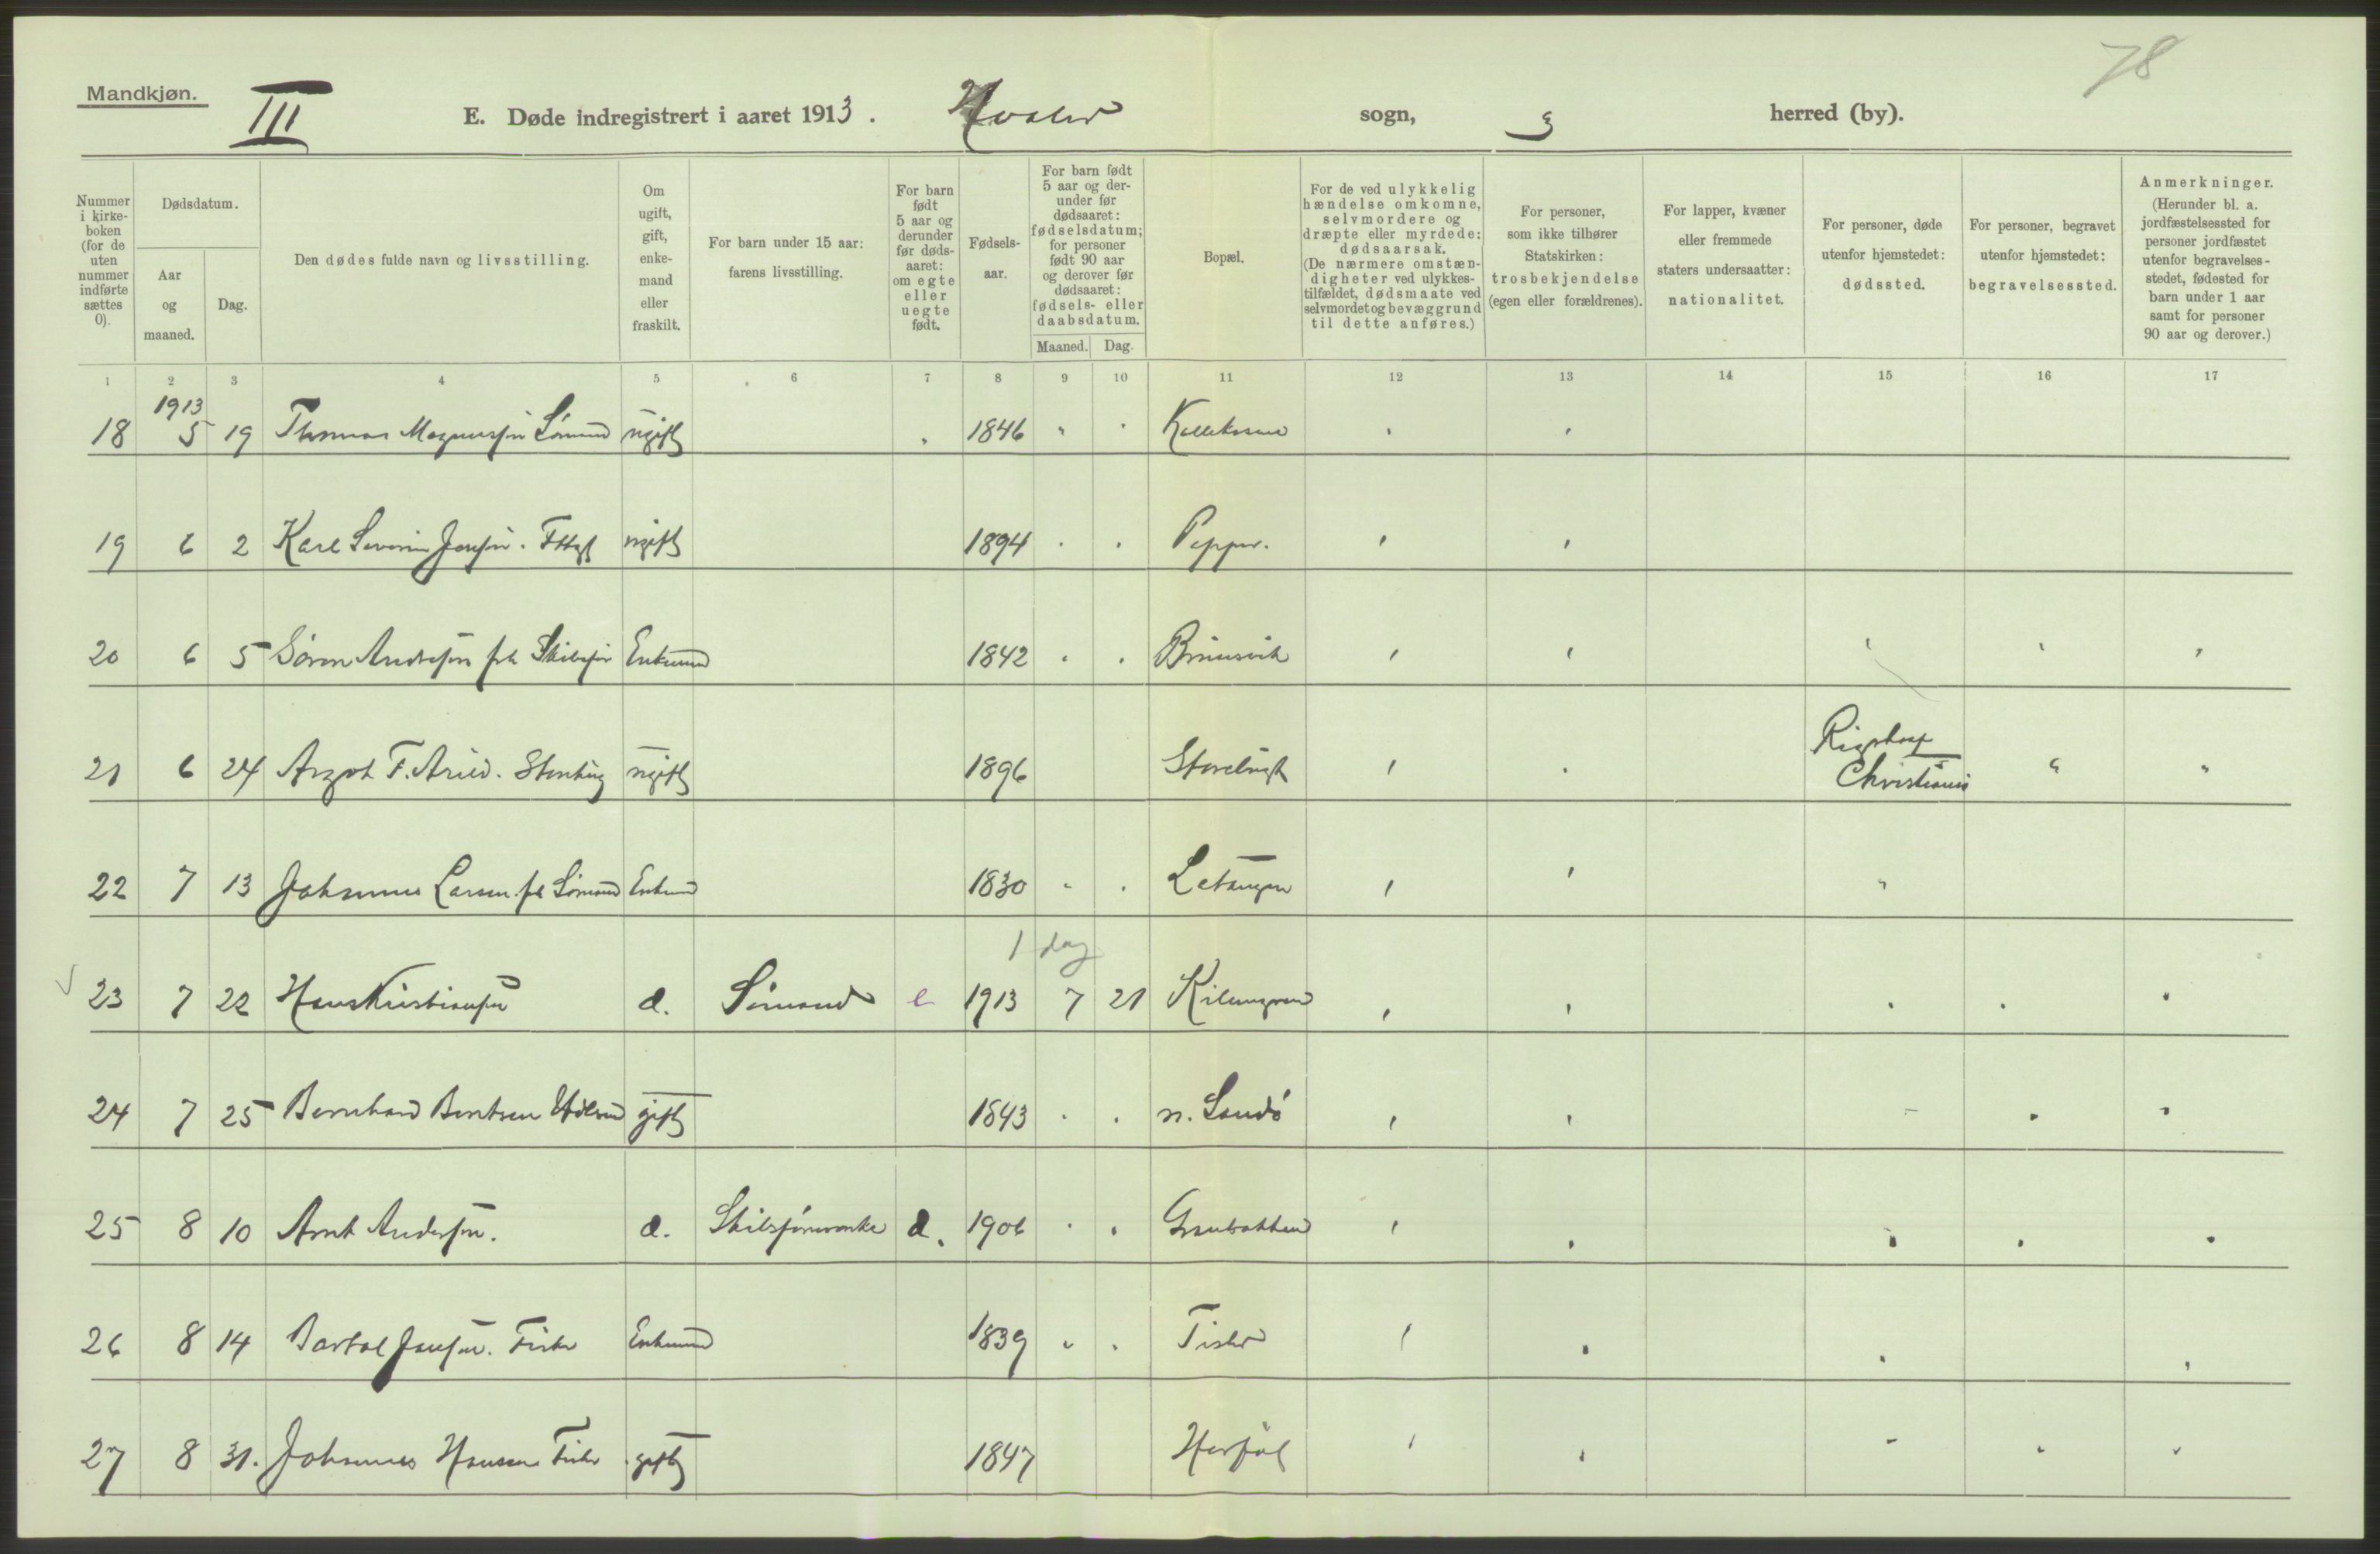 78
Mandkjøn.
III
E. Døde indregistrert i aaret 1913. Hvaler sogn, herred (by).
Nummer i kirkeboken (for de uten nummer indførte sættes 0).
Dødsdatum.
Aar og maaned.
Dag.
Den dødes fulde navn og livsstilling.
Om ugift, gift, enkemand eller fraskilt.
For barn under 15 aar: farens livsstilling.
For barn født 5 aar og derunder før dødsaaret: om egte eller uegte født.
Fødselsaar.
For barn født 5 aar og derunder før dødsaaret: fødselsdatum; for personer født 90 aar og derover før dødsaaret: fødsels- eller daabsdatum.
Maaned. Dag.
Bopæl.
For de ved ulykkelig hændelse omkomne, selvmordere og dræpte eller myrdede: dødsaarsak. (De nærmere omstændigheter ved ulykkestilfældet, dødsmaate ved selvmordet og bevæggrund til dette anføres.)
For personer, som ikke tilhører Statskirken: trosbekjendelse (egen eller forældrenes).
For lapper, kvæner eller fremmede staters undersaatter: nationalitet.
For personer, døde utenfor hjemstedet: dødssted.
For personer, begravet utenfor hjemstedet: begravelsessted.
Anmerkninger. (Herunder bl. a. jordfæstelsessted for personer jordfæstet utenfor begravelsesstedet, fødested for barn under 1 aar samt for personer 90 aar og derover.)
1 2 3 4 5 6 7 8 9 10 11 12 13 14 15 16 17
1913
18 5 19 Thomas Magnussen Sømand ugift 1846
19 6 2 Karl Severin Jensen. ugift 1894 Pepper.
20 6 5 Søren Andresen fh Enkemand 1842
21 6 24 F. Arild. ugift 1896 Rigshosp Christiania
22 7 13 Johannes Larsen fh Sømand Enkem 1830
1 dag
23 7 22 Hans Kristiansen d. Sømand e 1913 7 21
24 7 25 Bernhard Berntsen gift 1843 n. Sandø
25 8 10 Arnt Andersen. d. d. 1906
26 8 14 Bartol Jansen. Fisker Enkemand 1839
27 8 31. Johannes Hansen Fisker gift 1847 Herføl